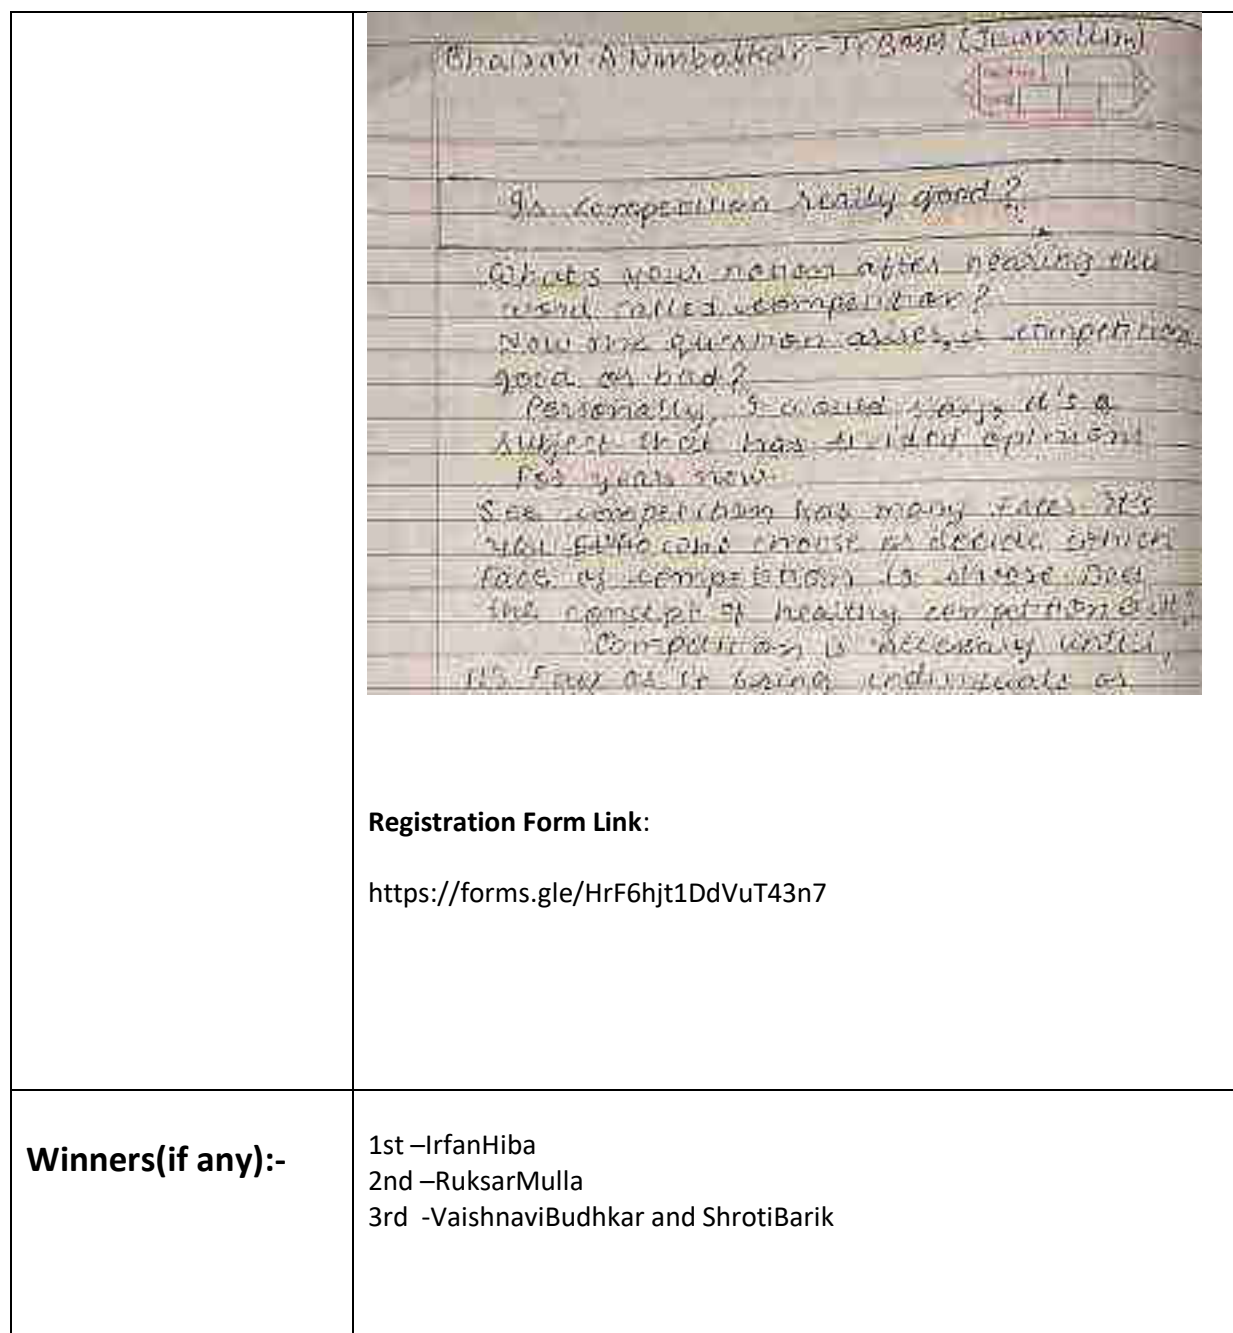 A Nimbalkar - TYBMM (Journalism)
Is competition really good?
What's your notion after hearing the
word called competition?
Now one question arises, is competition
good or bad?
Personally, I would say, it's a
subject that has divided opinions
for years now.
See competition has many faces it's
you who choose or decide which
face of competition is
the concept of healthy competition
Competition is necessary until,
as it bring individuals or
Registration Form Link:
https://forms.gle/HrF6hjt1DdVuT43n7
Winners(if any):-
1st –IrfanHiba
2nd –RuksarMulla
3rd -VaishnaviBudhkar and ShrotiBarik